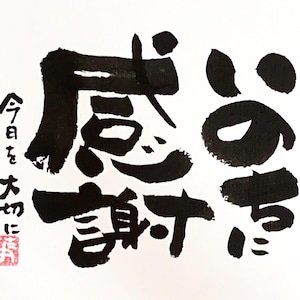 いのちに
感謝
今日を大切に